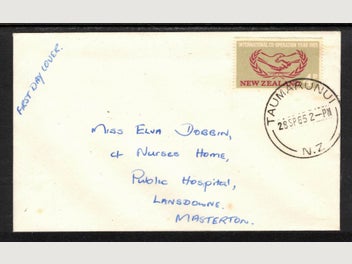 FIRST DAY COVER.
INTERNATIONAL CO-OPERATION YEAR 1965
NEW ZEALAND 4D
TAUMARUNUI
28SP65 2-PM
N.Z.
MISS ELVA DOBBIN,
c/ NURSES HOME,
Public Hospital,
LANSDOWNE.
MASTERTON.